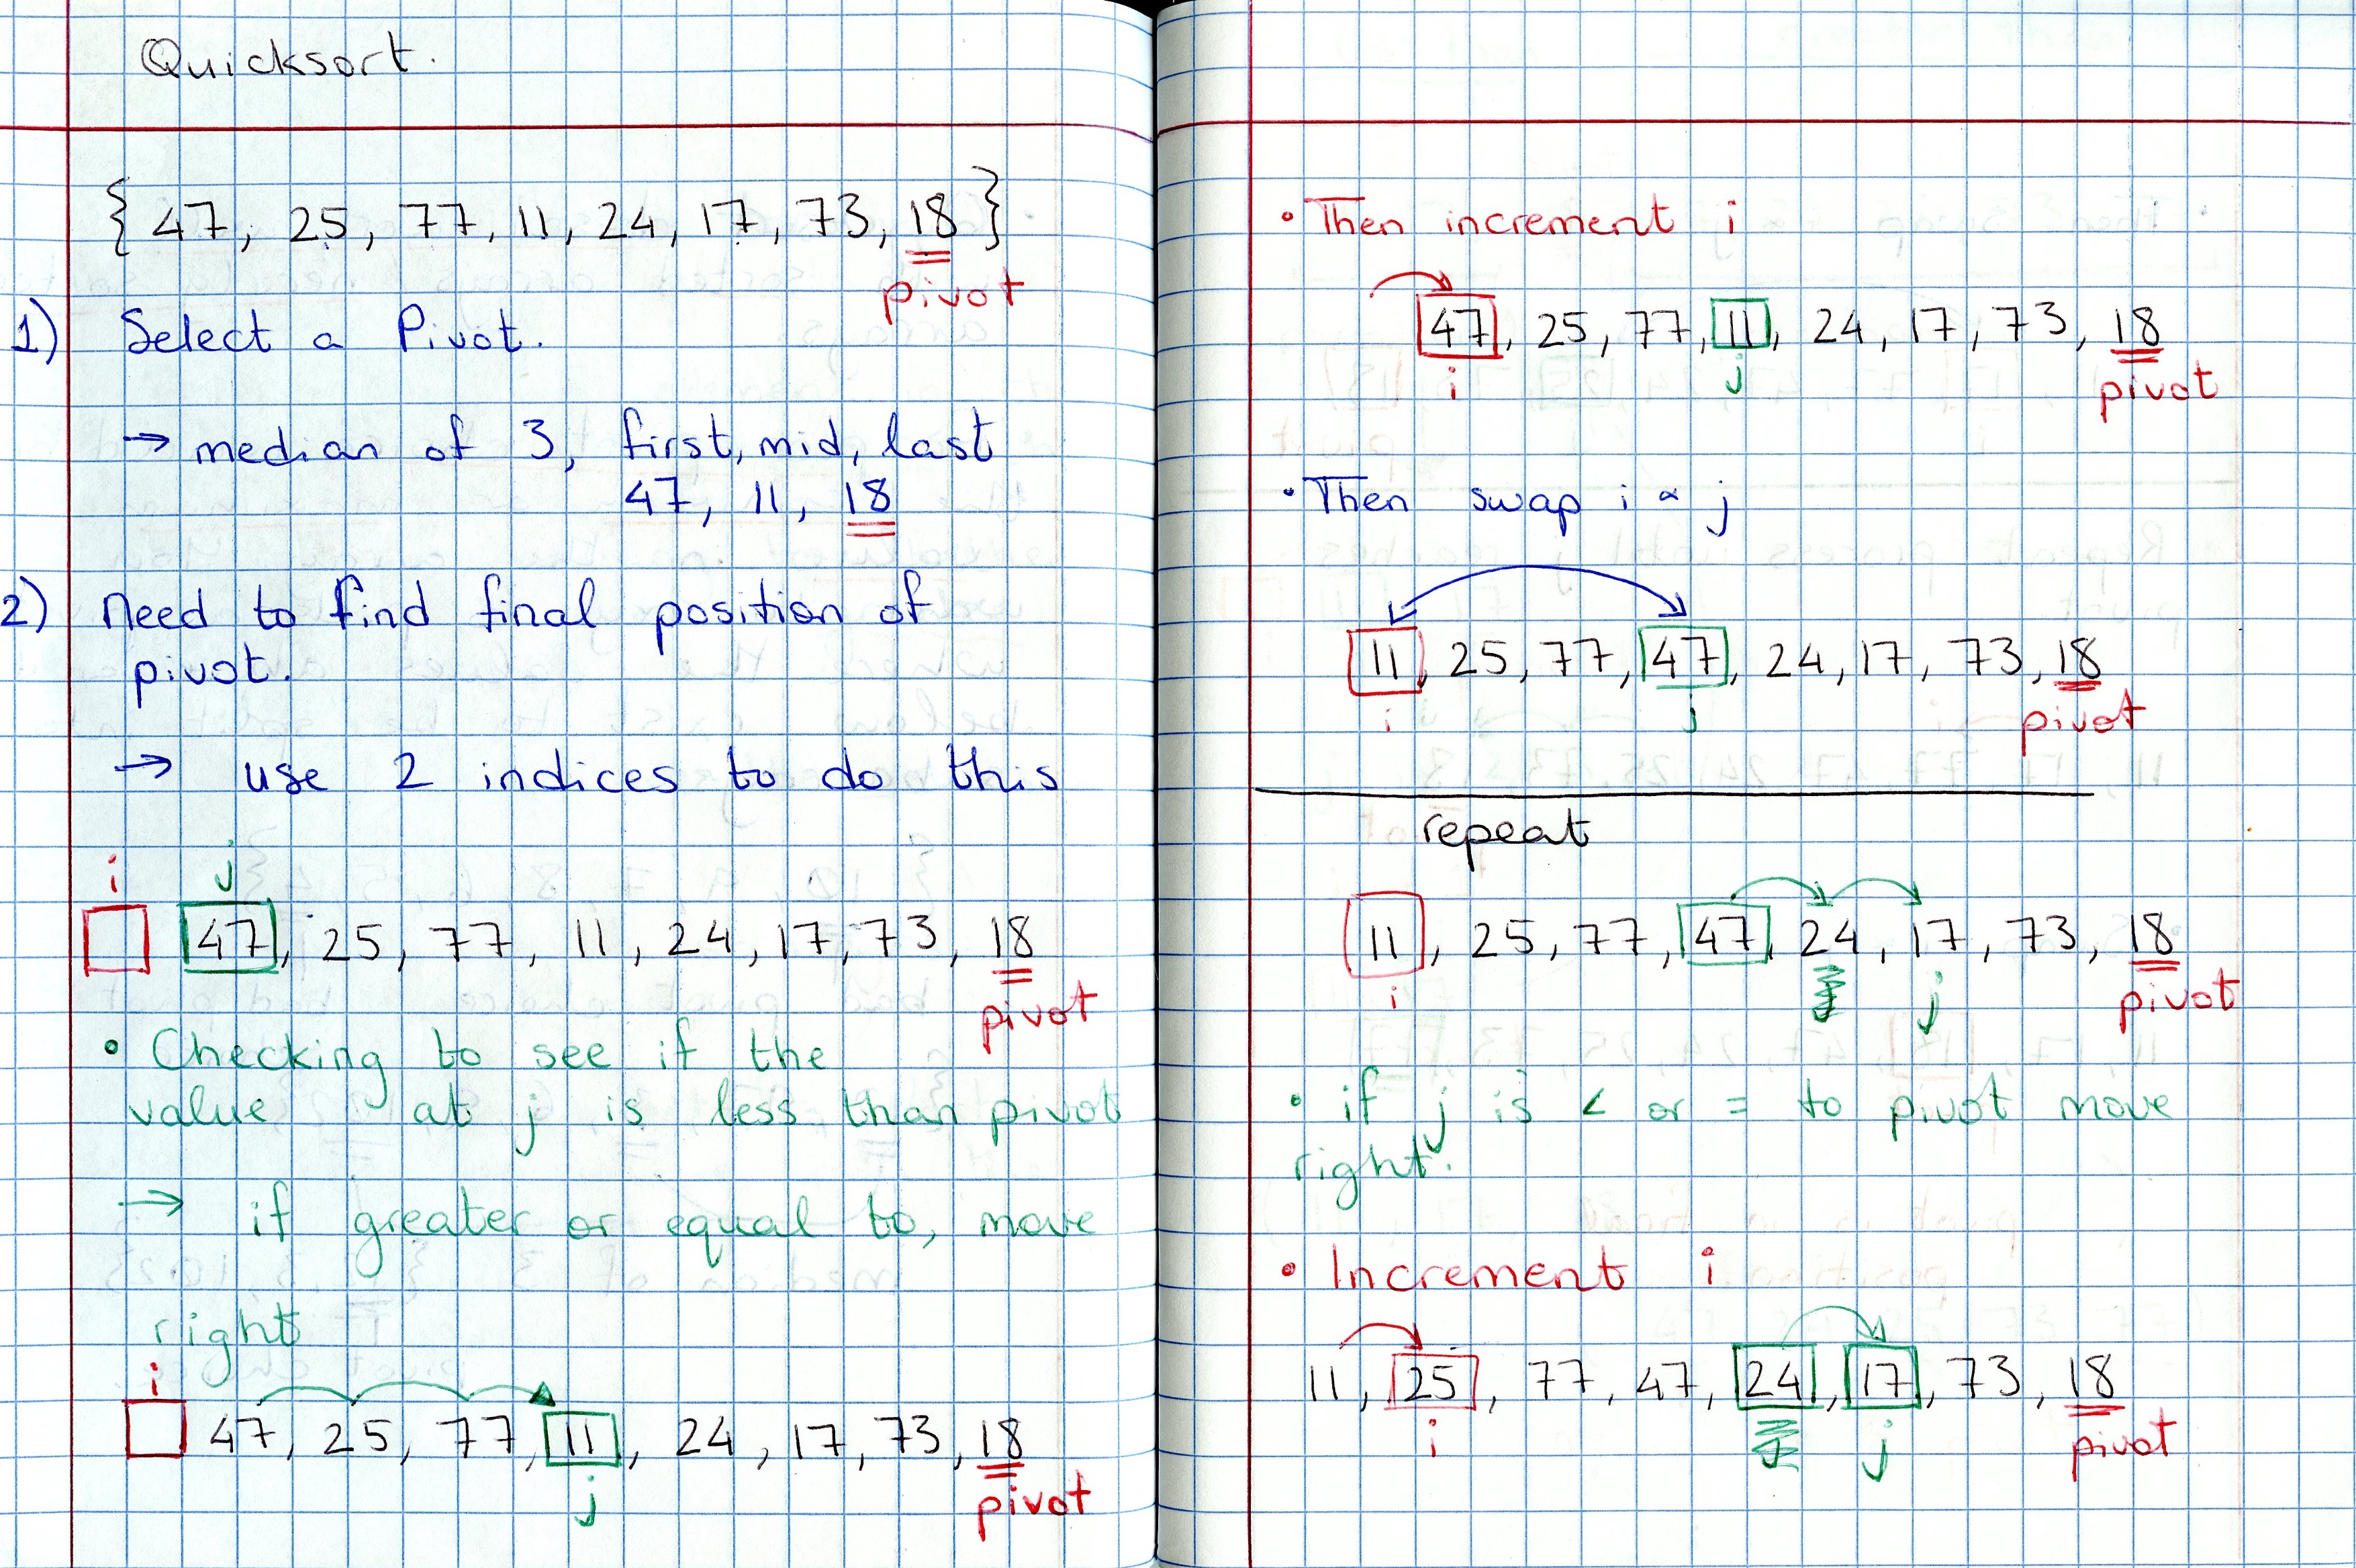 Quicksort.
{ 47, 25, 77, 11, 24, 17, 73, 18 }
pivot
1) Select a Pivot.
→ median of 3, first, mid, last
47, 11, 18
2) need to find final position of
pivot.
→ use 2 indices to do this
i j
47, 25, 77, 11, 24, 17, 73, 18
pivot
• Checking to see if the
value at j is less than pivot
→ if greater or equal to, move
right
i
47, 25, 77, 11, 24, 17, 73, 18
j pivot
• Then increment i
47, 25, 77, 11, 24, 17, 73, 18
i j pivot
• Then swap i & j
11, 25, 77, 47, 24, 17, 73, 18
i j pivot
repeat
11, 25, 77, 47, 24, 17, 73, 18
i j pivot
• if j is < or = to pivot move
right.
• Increment i
11, 25, 77, 47, 24, 17, 73, 18
i j pivot